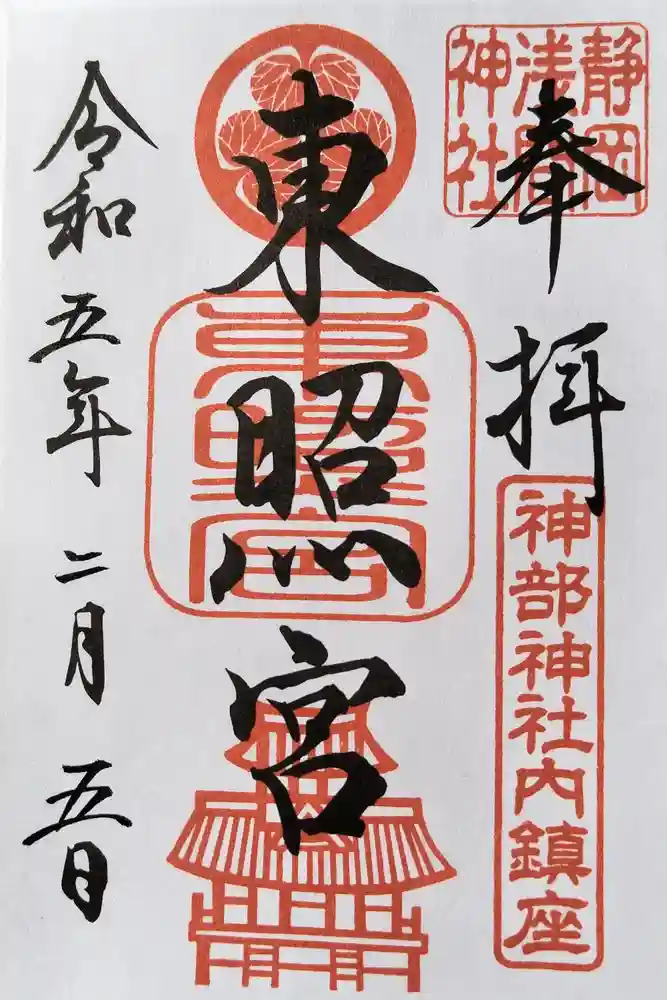 静岡
浅間
神社
奉拝
神部神社内鎮座
東照宮
東照宮
令和五年二月五日